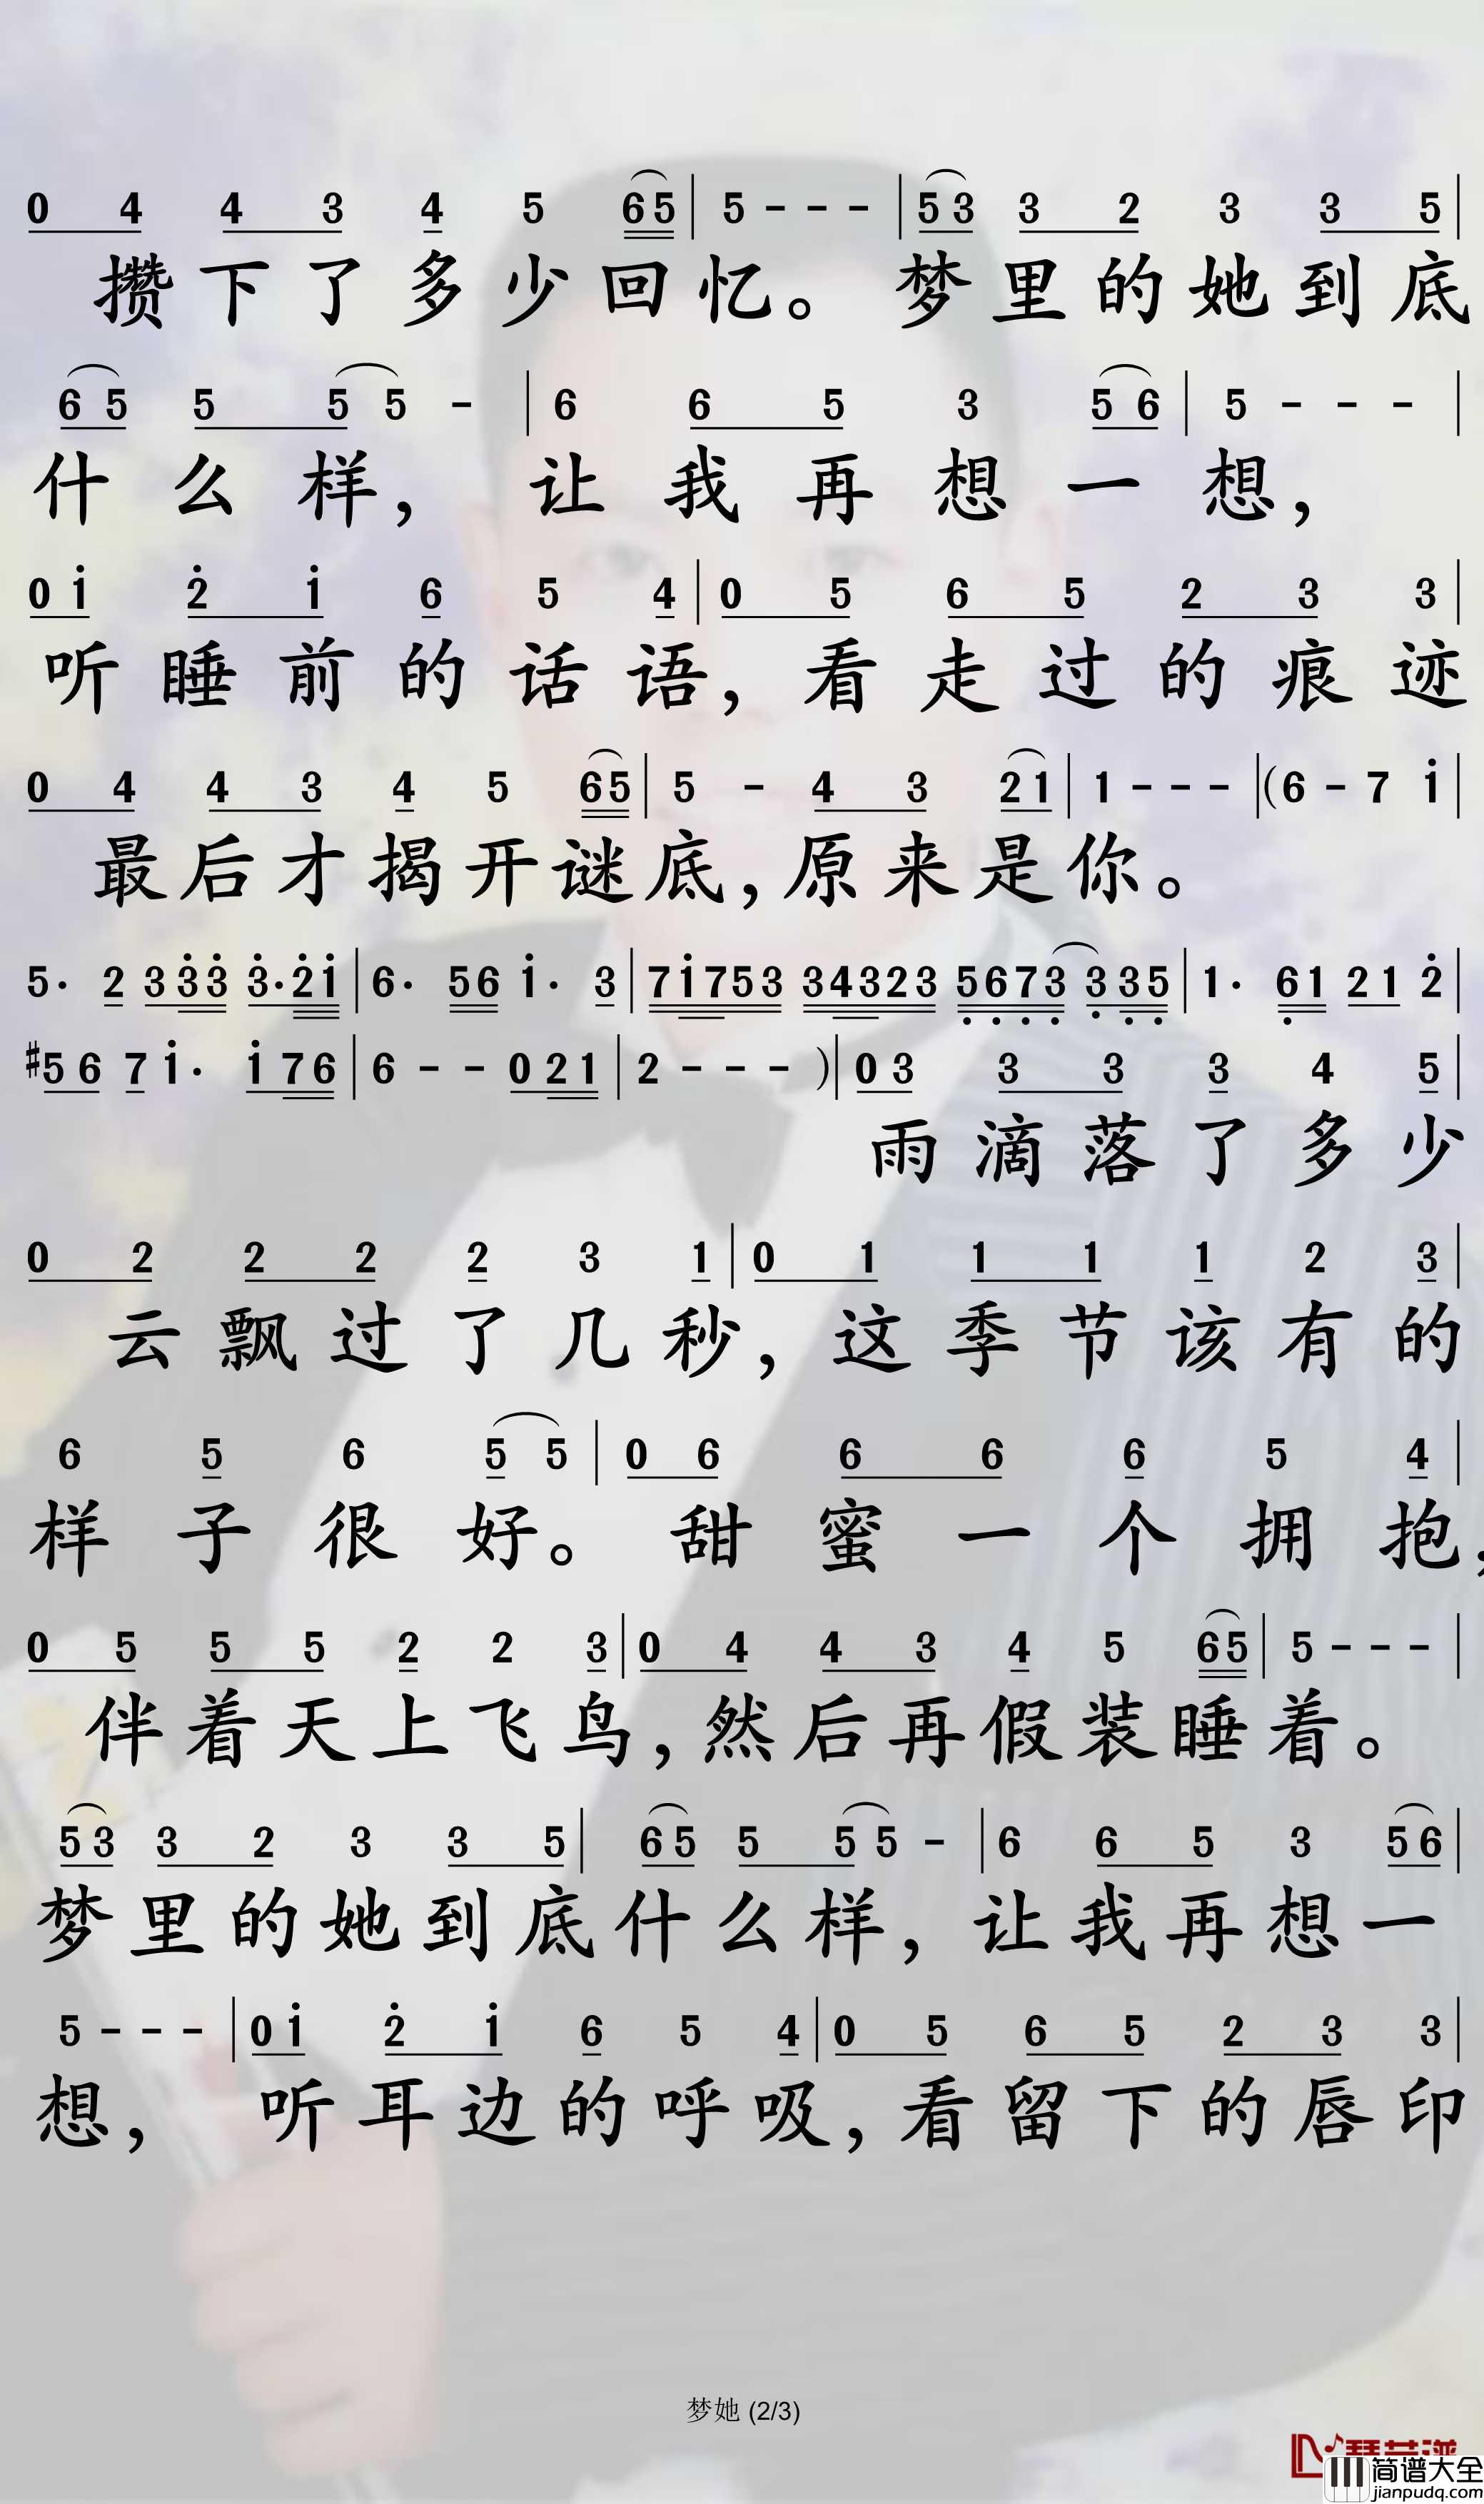 0 4 4 3 4 5 6 5 | 5 - - - | 5 3 3 2 3 3 5 |
攒下了多少回忆。梦里的她到底
6 5 5 5 5 - | 6 6 5 3 5 6 | 5 - - - |
什么样，让我再想一想，
0 i 2 i 6 5 4 | 0 5 6 5 2 3 3 |
听睡前的话语，看走过的痕迹
0 4 4 3 4 5 6 5 | 5 - 4 3 2 1 | 1 - - - | (6 - 7 i |
最后才揭开谜底，原来是你。
5· 2 3 3 3 3· 2 i | 6· 5 6 i· 3 | 7 i 7 5 3 3 4 3 2 3 5 6 7 3 3 3 5 | 1· 6 1 2 1 2 |
#5 6 7 i· i 7 6 | 6 - - 0 2 1 | 2 - - - ) | 0 3 3 3 3 4 5 |
雨滴落了多少
0 2 2 2 2 3 1 | 0 1 1 1 1 2 3 |
云飘过了几秒，这季节该有的
6 5 6 5 5 | 0 6 6 6 6 5 4 |
样子很好。甜蜜一个拥抱，
0 5 5 5 2 2 3 | 0 4 4 3 4 5 6 5 | 5 - - - |
伴着天上飞鸟，然后再假装睡着。
5 3 3 2 3 3 5 | 6 5 5 5 5 - | 6 6 5 3 5 6 |
梦里的她到底什么样，让我再想一
5 - - - | 0 i 2 i 6 5 4 | 0 5 6 5 2 3 3 |
想，听耳边的呼吸，看留下的唇印
梦她 (2/3)
简谱大全
jianpudq.com